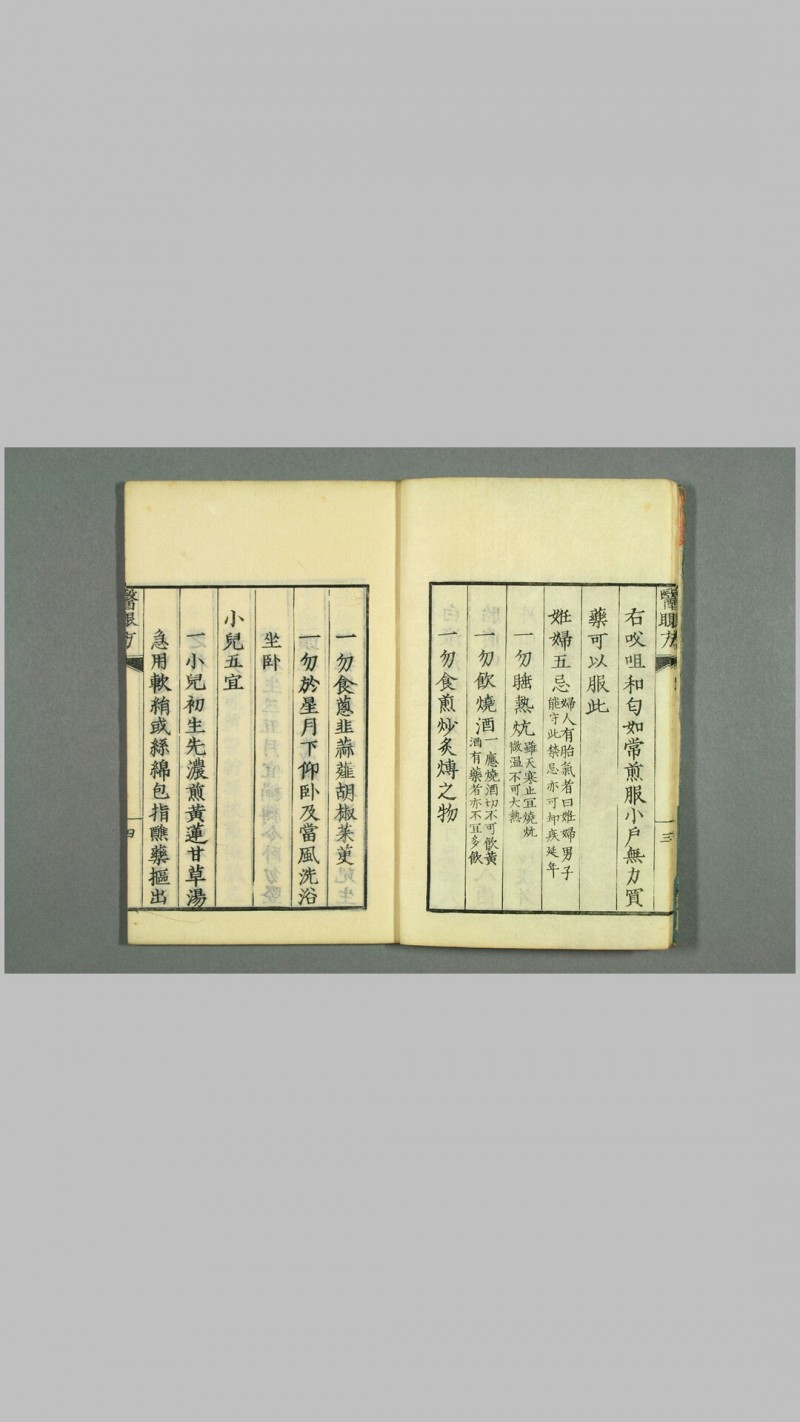 醫眼方
三
右㕮咀和勻如常煎服小戶無力買
藥可以服此
姙婦五忌婦人有胎氣者曰姙婦男子
能守此禁忌亦可却疾延年
一勿睡熱炕雖天寒止宜燒炕
微溫不可大熱
一勿飲燒酒一應燒酒切不可飲黃
酒有藥者亦不宜多飲
一勿食煎炒炙煿之物
一勿食蔥韭蒜薤胡椒茱萸
一勿於星月下仰卧及當風洗浴
坐卧
小兒五宜
一小兒初生先濃煎黃蓮甘草湯
急用軟絹或絲綿包指蘸藥摳出
醫眼方
四